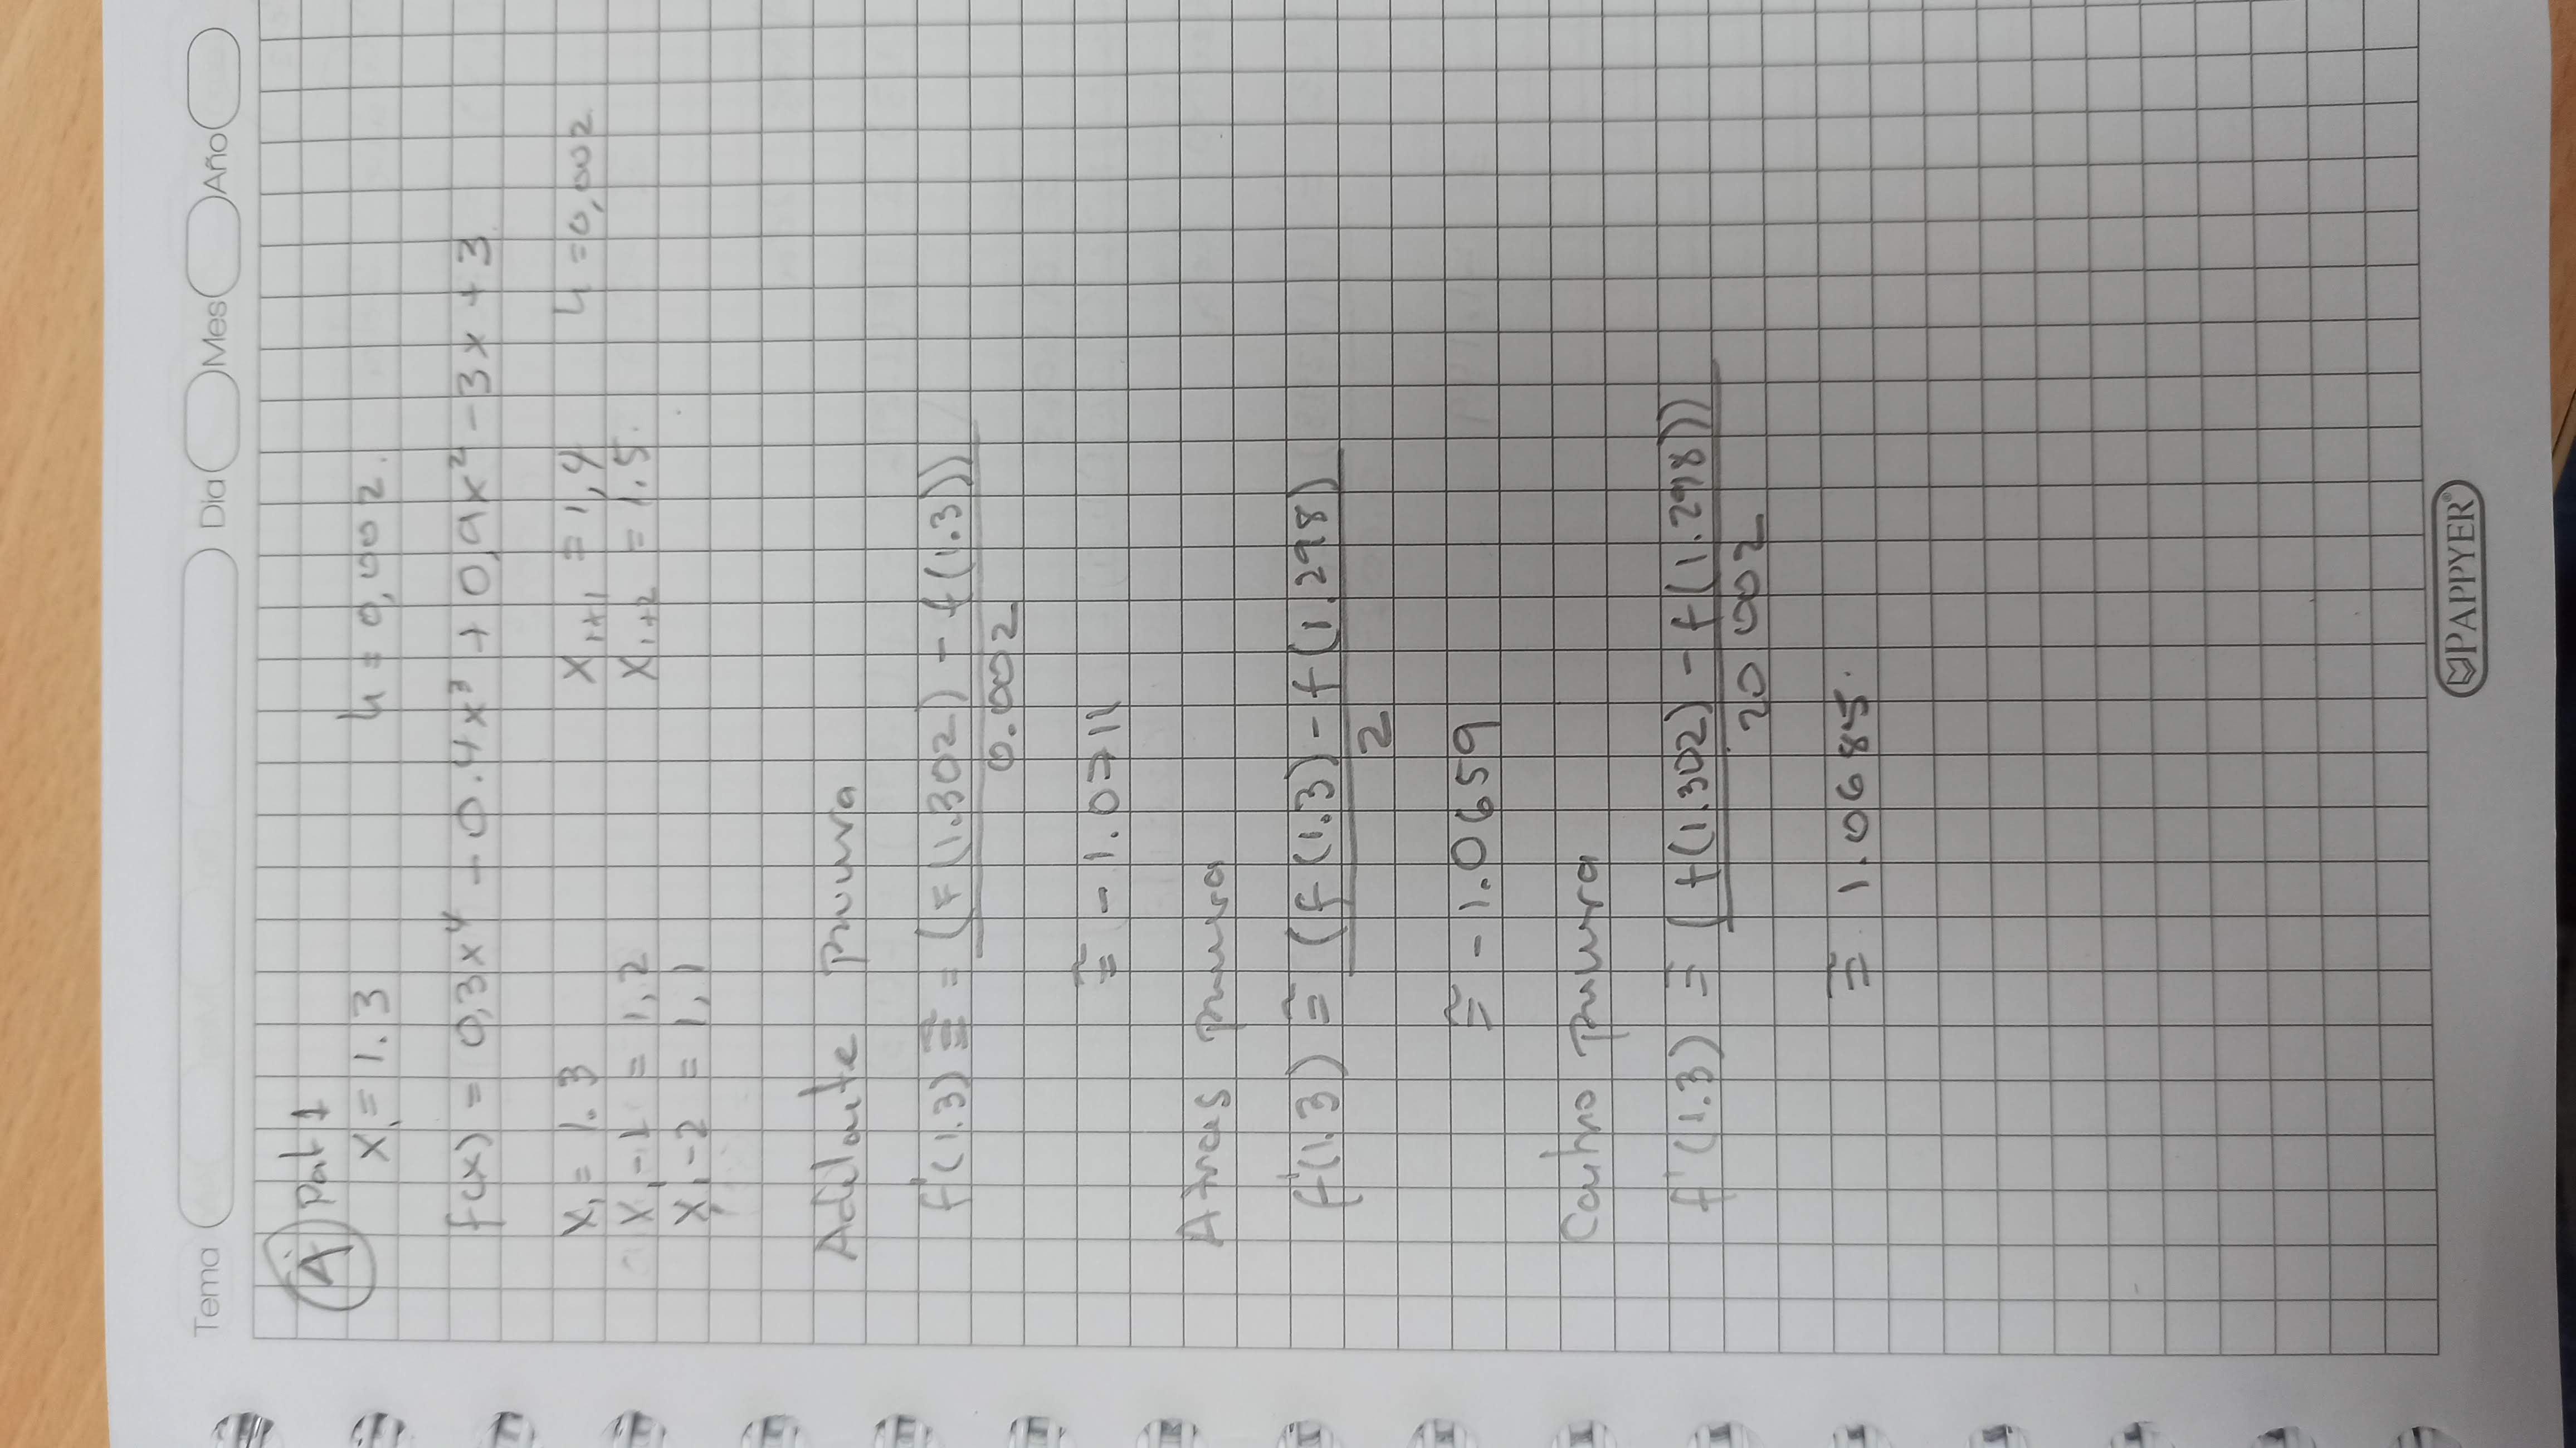 Tema Dia Mes Año
A Part 1
x₁ = 1.3 h = 0,002.
f(x) = 0,3x⁴ - 0.4x³ + 0,9x² - 3x + 3
x₁ = 1.3 x₁₊₁ = 1,4 h = 0,002
x₁-1 = 1,2 x₁₊₂ = 1.5.
x₁-2 = 1,1
Adelante primera
f'(1.3) ≅ = (f(1.302) - f(1.3))
0.002
≅ -1.0711
Atras primera
f'(1.3) ≅ (f(1.3) - f(1.298)
2
≅ -1.0659
Centro primera
f'(1.3) ≅ (f(1.302) - f(1.298))
20 002
≅ 1.0685.
PAPPYER®